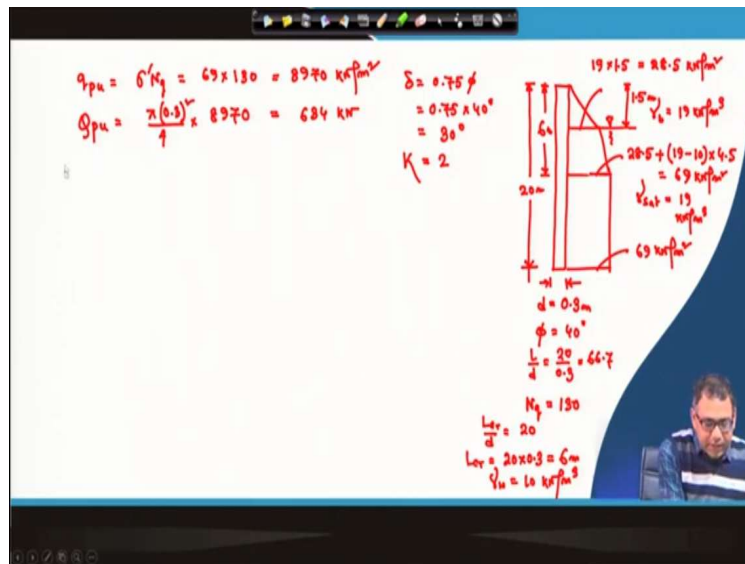 qpu = σ'Nq = 69 × 130 = 8970 kN/m²
Qpu = π(0.3)²/4 × 8970 = 634 kN
δ = 0.75 φ
= 0.75 × 40°
= 30°
K = 2
19 × 1.5 = 28.5 kN/m²
1.5 m
γb = 19 kN/m³
6m
20m
28.5 + (19 - 10) × 4.5
= 69 kN/m²
γsat = 19
kN/m³
69 kN/m²
d = 0.3m
φ = 40°
L/d = 20/0.3 = 66.7
Nq = 130
Lcr/d = 20
Lcr = 20 × 0.3 = 6m
γw = 10 kN/m³